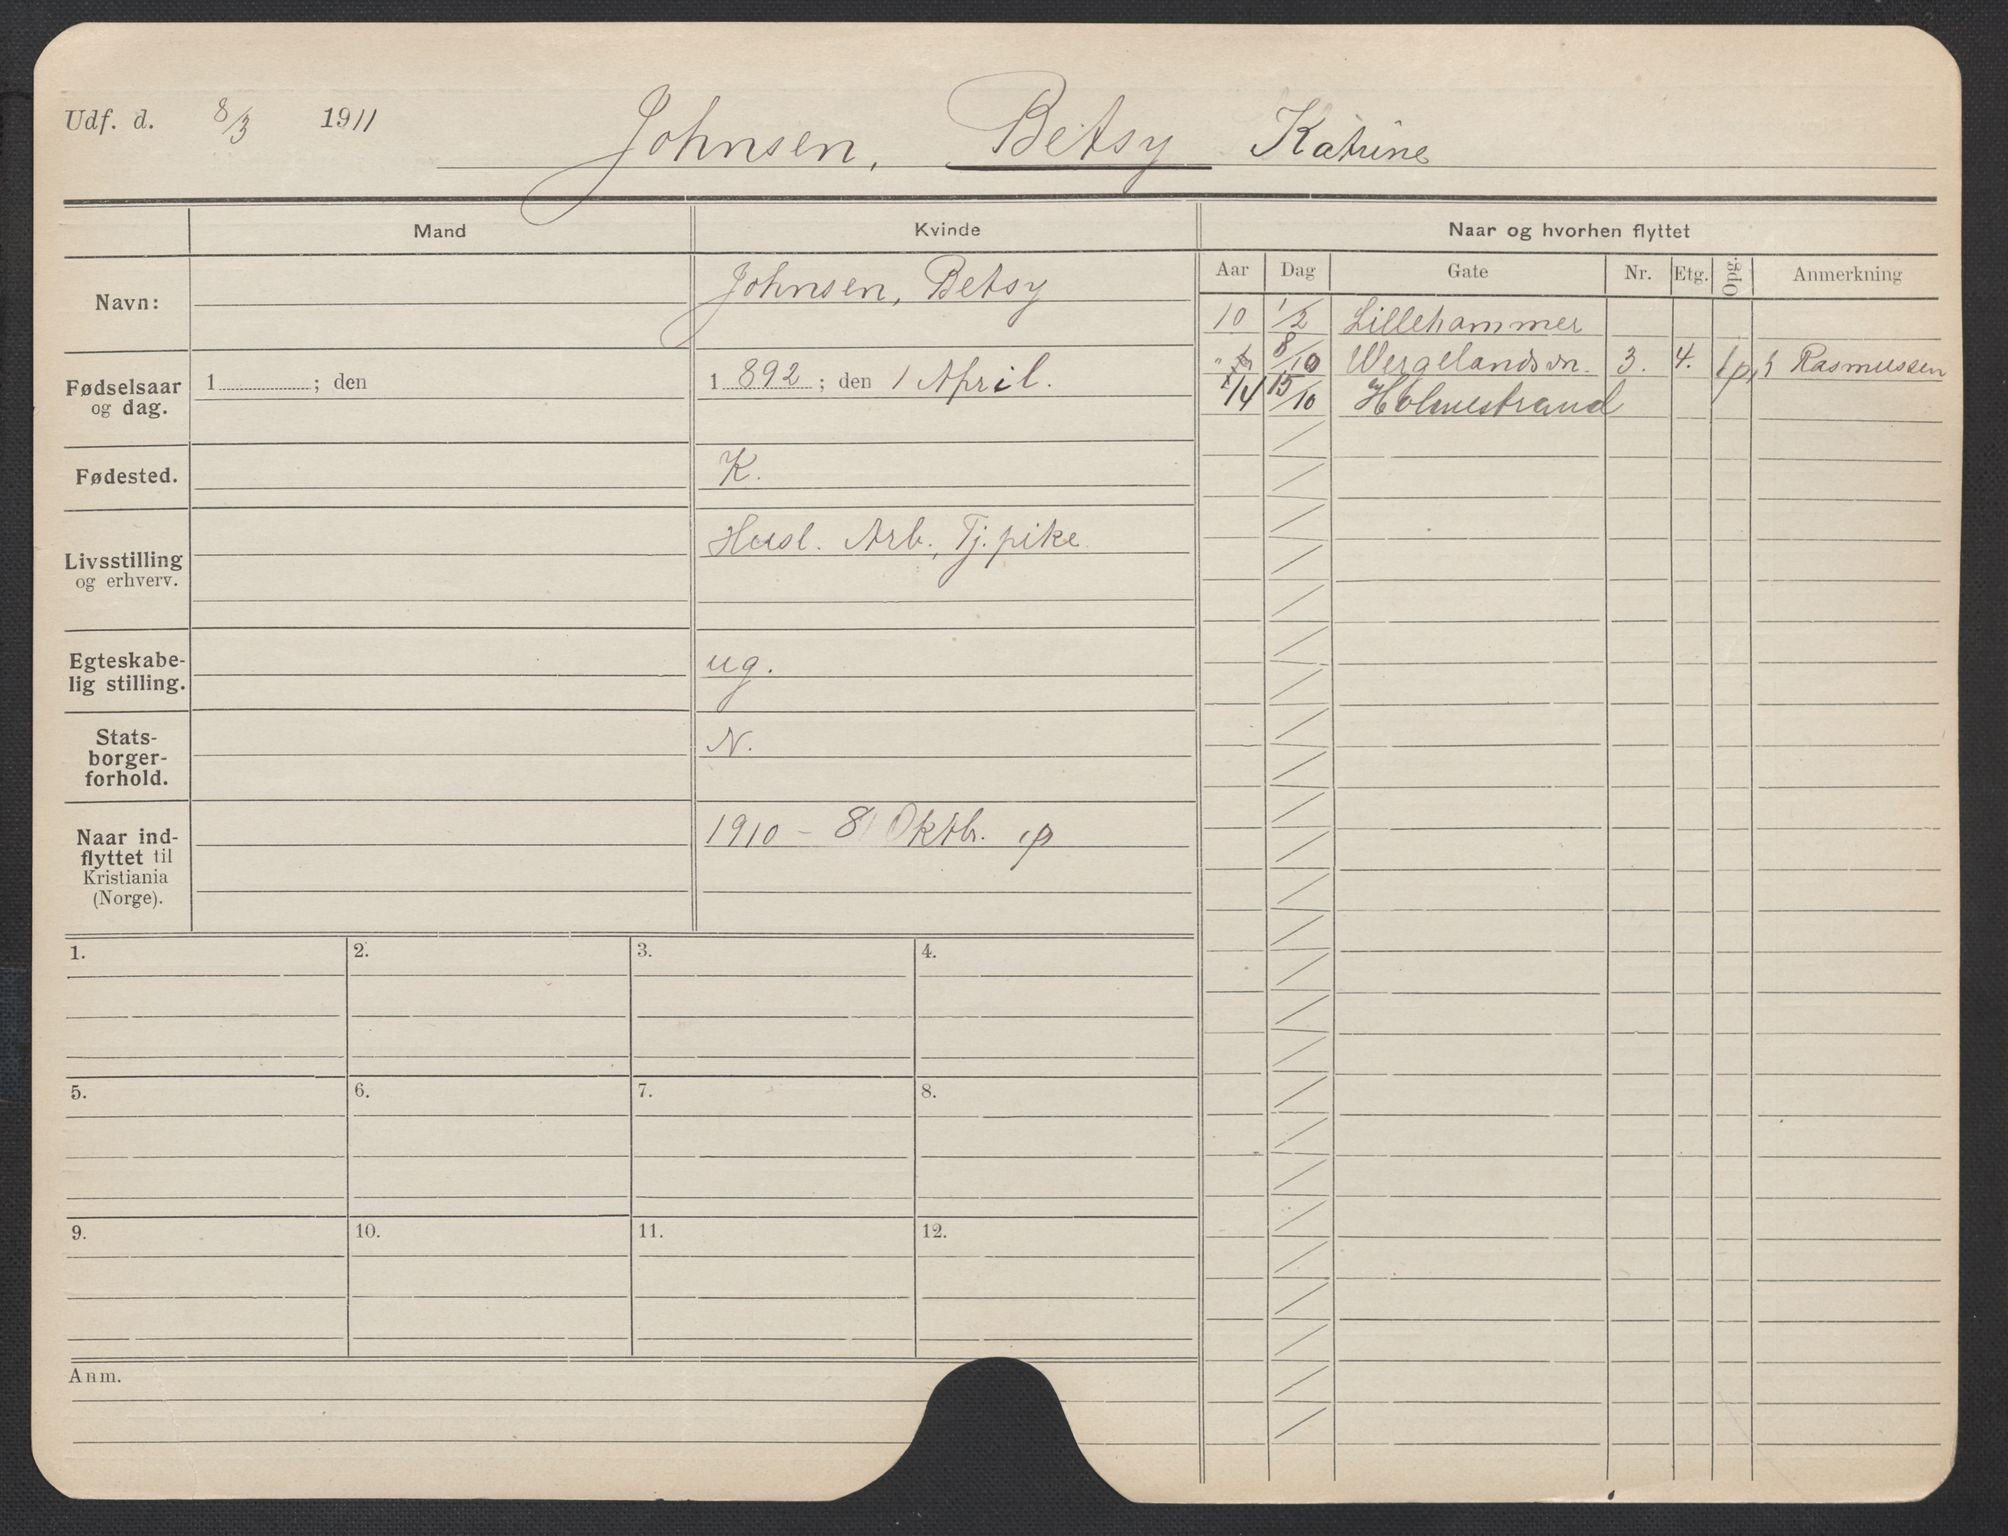 Udf. d. 8/3 1911 Johnsen, Betsy Katrine
Mand Kvinde Naar og hvorhen flyttet
Aar Dag Gate Nr. Etg. Opg. Anmerkning
Navn: Johnsen, Betsy
10 1/2 Lillehammer
" 8/10 Wergelandsvn. 3. 4. Rasmussen
14 15/10 Holmestrand
Fødselsaar
og dag.
1 ; den
1 892 ; den 1 April.
Fødested. K.
Livsstilling
og erhverv.
Husl. Arb., Tj.pike
Egteskabe-
lig stilling.
ug.
Stats-
borger-
forhold.
N.
Naar ind-
flyttet til
Kristiania
(Norge).
1910 - 8 Oktbr.
1. 2. 3. 4.
5. 6. 7. 8.
9. 10. 11. 12.
Anm.